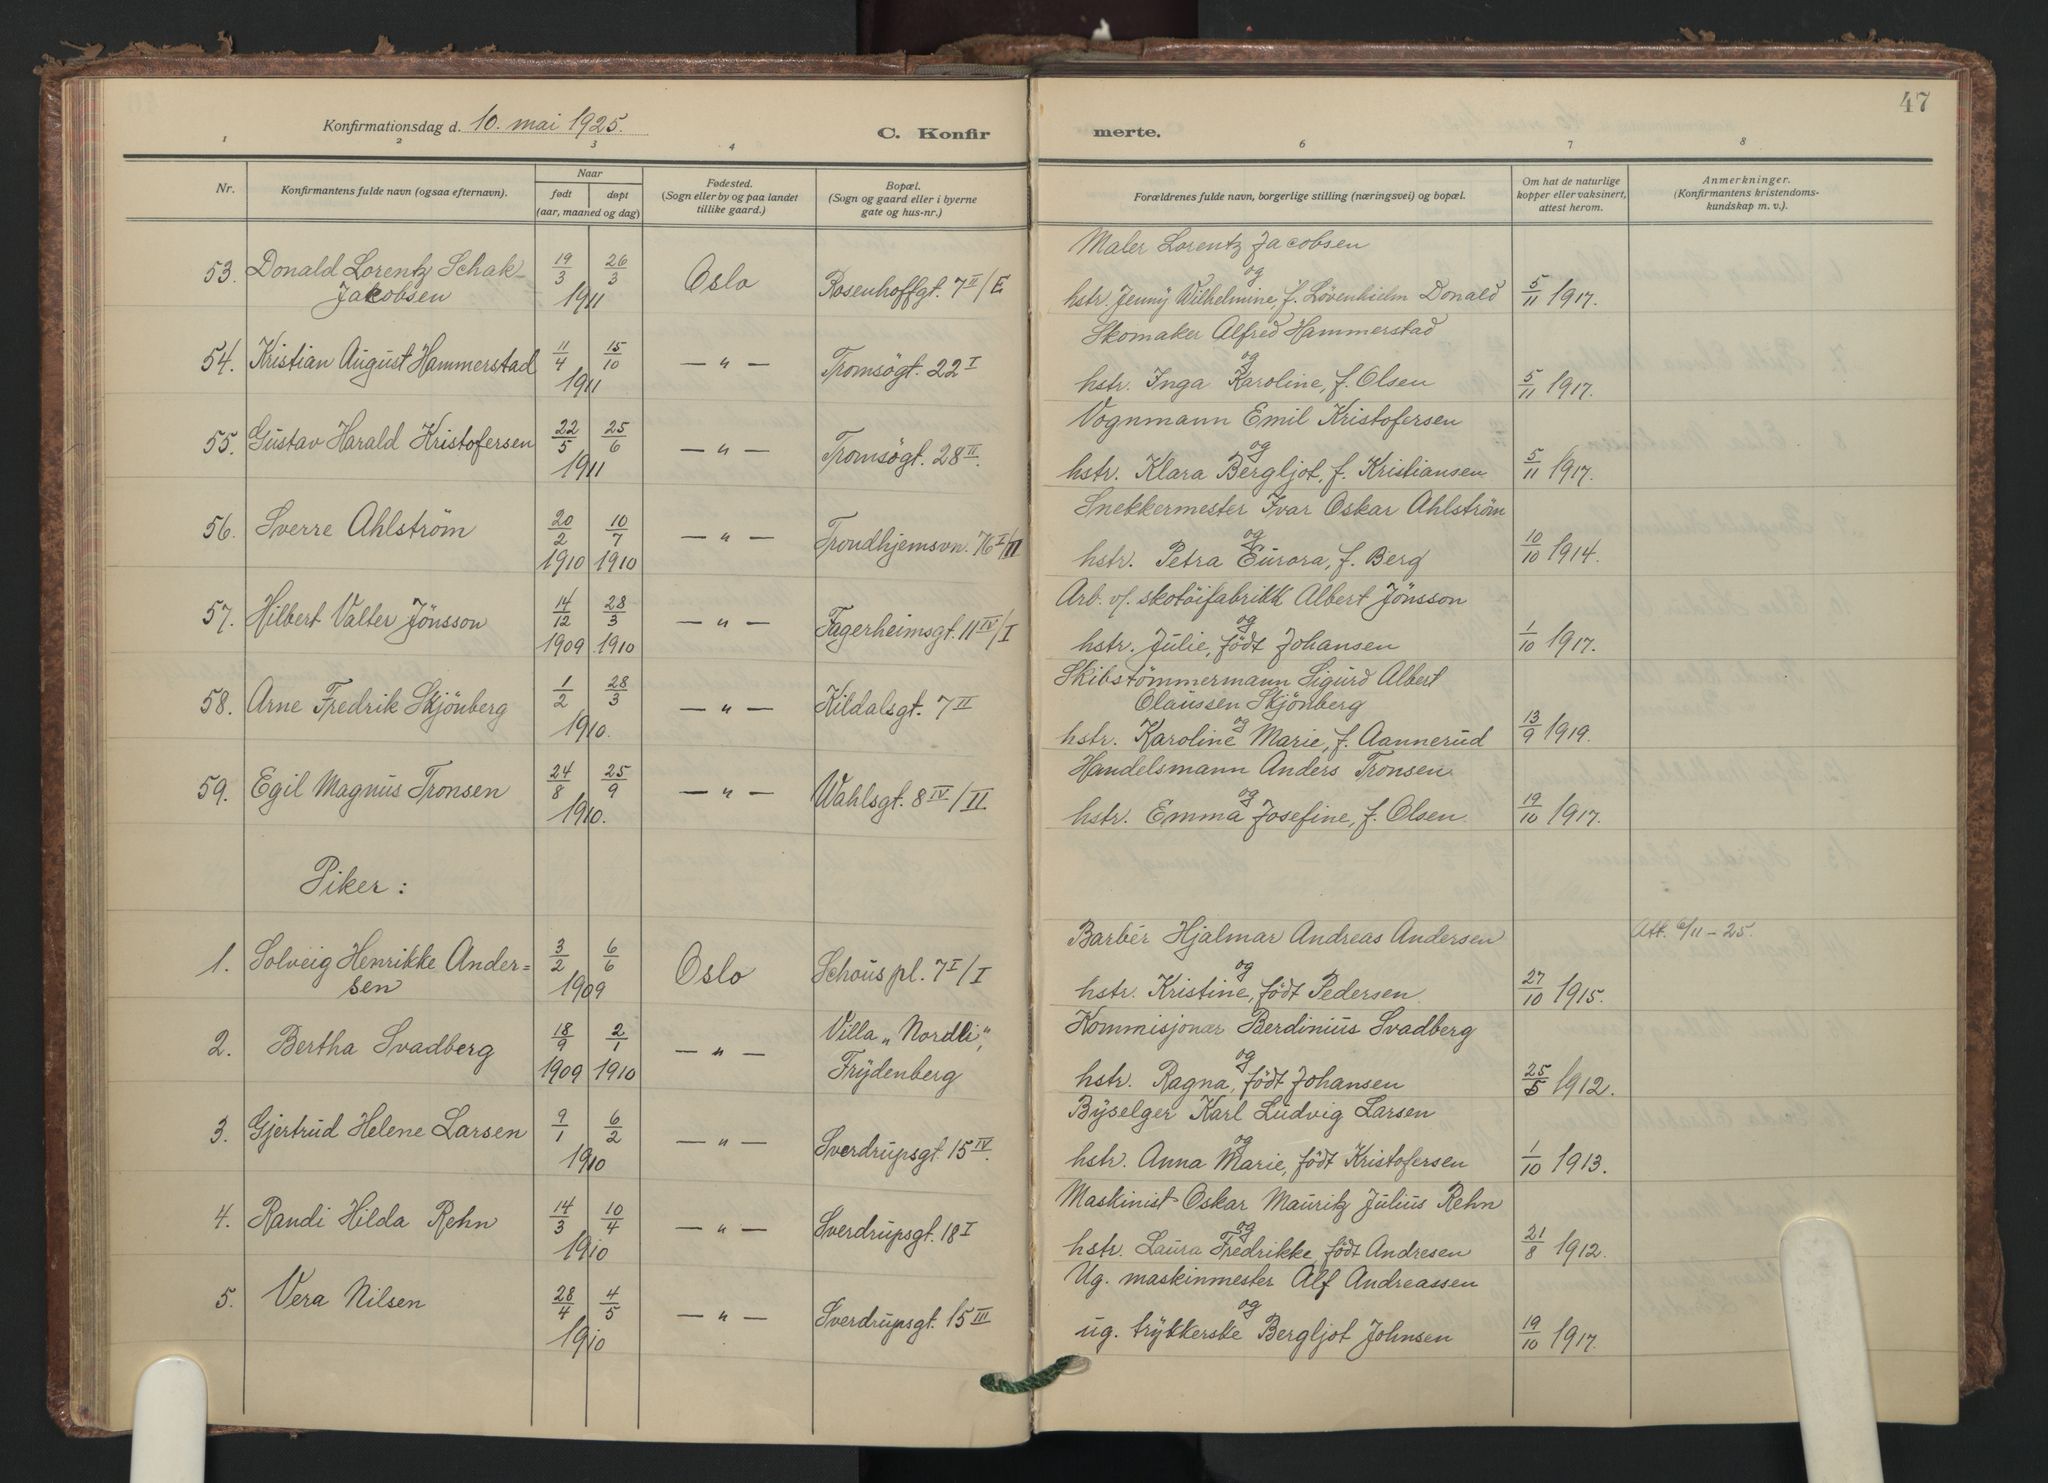 47
Konfirmationsdag d. 10. mai 1925.
C. Konfirmerte.
1 2 3 4 5 6 7 8
Nr.
Konfirmantens fulde navn (ogsaa efternavn).
Naar
født døpt
(aar, maaned og dag)
Fødested.
(Sogn eller by og paa landet
tillike gaard.)
Bopæl.
(Sogn og gaard eller i byerne
gate og hus-nr.)
Forældrenes fulde navn, borgerlige stilling (næringsvei) og bopæl.
Om hat de naturlige
kopper eller vaksinert,
attest herom.
Anmerkninger.
(Konfirmantens kristendoms-
kundskap m. v.).
53. Donald Lorentz Schak- 19/3 26/3 Oslo Rosenhoffgt. 7 II/E
Jacobsen 1911
Maler Lorentz Jacobsen
og
hstr. Jenny Wilhelmine, f. Lövenhielm Donald 5/11 1917.
54. Kristian August Hammerstad 11/4 15/10 — „ — Tromsögt. 22 I
1911
Skomaker Alfred Hammerstad
og
hstr. Inga Karoline, f. Olsen 5/11 1917.
55. Gustav Harald Kristofersen 22/5 25/6 — „ — Tromsögt. 28 II.
1911
Vognmann Emil Kristofersen
og
hstr. Klara Bergljot, f. Kristiansen 5/11 1917.
56. Sverre Ahlström 20/2 10/7 — „ — Trondhjemsvn. 76 I/II
1910 1910
Snekkermester Ivar Oskar Ahlström
og
hstr. Petra Eurora, f. Berg 10/10 1914.
57. Hilbert Valter Jönsson 14/12 28/3 — „ — Fagerheimsgt. 11 IV/I
1909 1910
Arb. v/ skotöifabrikk Albert Jönsson
og
hstr. Julie, födt Johansen 1/10 1917.
58. Arne Fredrik Skjönberg 1/2 28/3 — „ — Kildalsgt. 7 II
1910.
Skibstömmermann Sigurd Albert
Olaussen Skjönberg
og
hstr. Karoline Marie, f. Aannerud 13/9 1919.
59. Egil Magnus Tronsen 24/8 25/9 — „ — Wahlsgt. 8 IV/II
1910.
Handelsmann Anders Tronsen
og
hstr. Emma Josefine, f. Olsen 19/10 1917.
Piker:
1. Solveig Henrikke Ander= 3/2 6/6 Oslo Schous pl. 7 I/I
sen 1909
Barbér Hjalmar Andreas Andersen Att. 6/11-25.
og
hstr. Kristine, födt Pedersen 27/10 1915.
2. Bertha Svadberg 18/9 2/1 — „ — Villa „Nordli",
1909 1910 Frydenberg
Kommisjonær Berdinius Svadberg
og
hstr. Ragna, födt Johansen 25/5 1912.
3. Gjertrud Helene Larsen 9/1 6/2 — „ — Sverdrupsgt. 15 IV.
1910
Byselger Karl Ludvig Larsen
og
hstr. Anna Marie, födt Kristofersen 1/10 1913.
4. Randi Hilda Rehn 14/3 10/4 — „ — Sverdrupsgt. 18 I
1910
Maskinist Oskar Mauritz Julius Rehn
og
hstr. Laura Fredrikke, födt Andresen 21/8 1912.
5. Vera Nilsen 28/4 4/5 — „ — Sverdrupsgt. 15 III
1910
Ug. maskinmester Alf Andreassen
og
ug. trykkerske Bergljot Johnsen 19/10 1917.